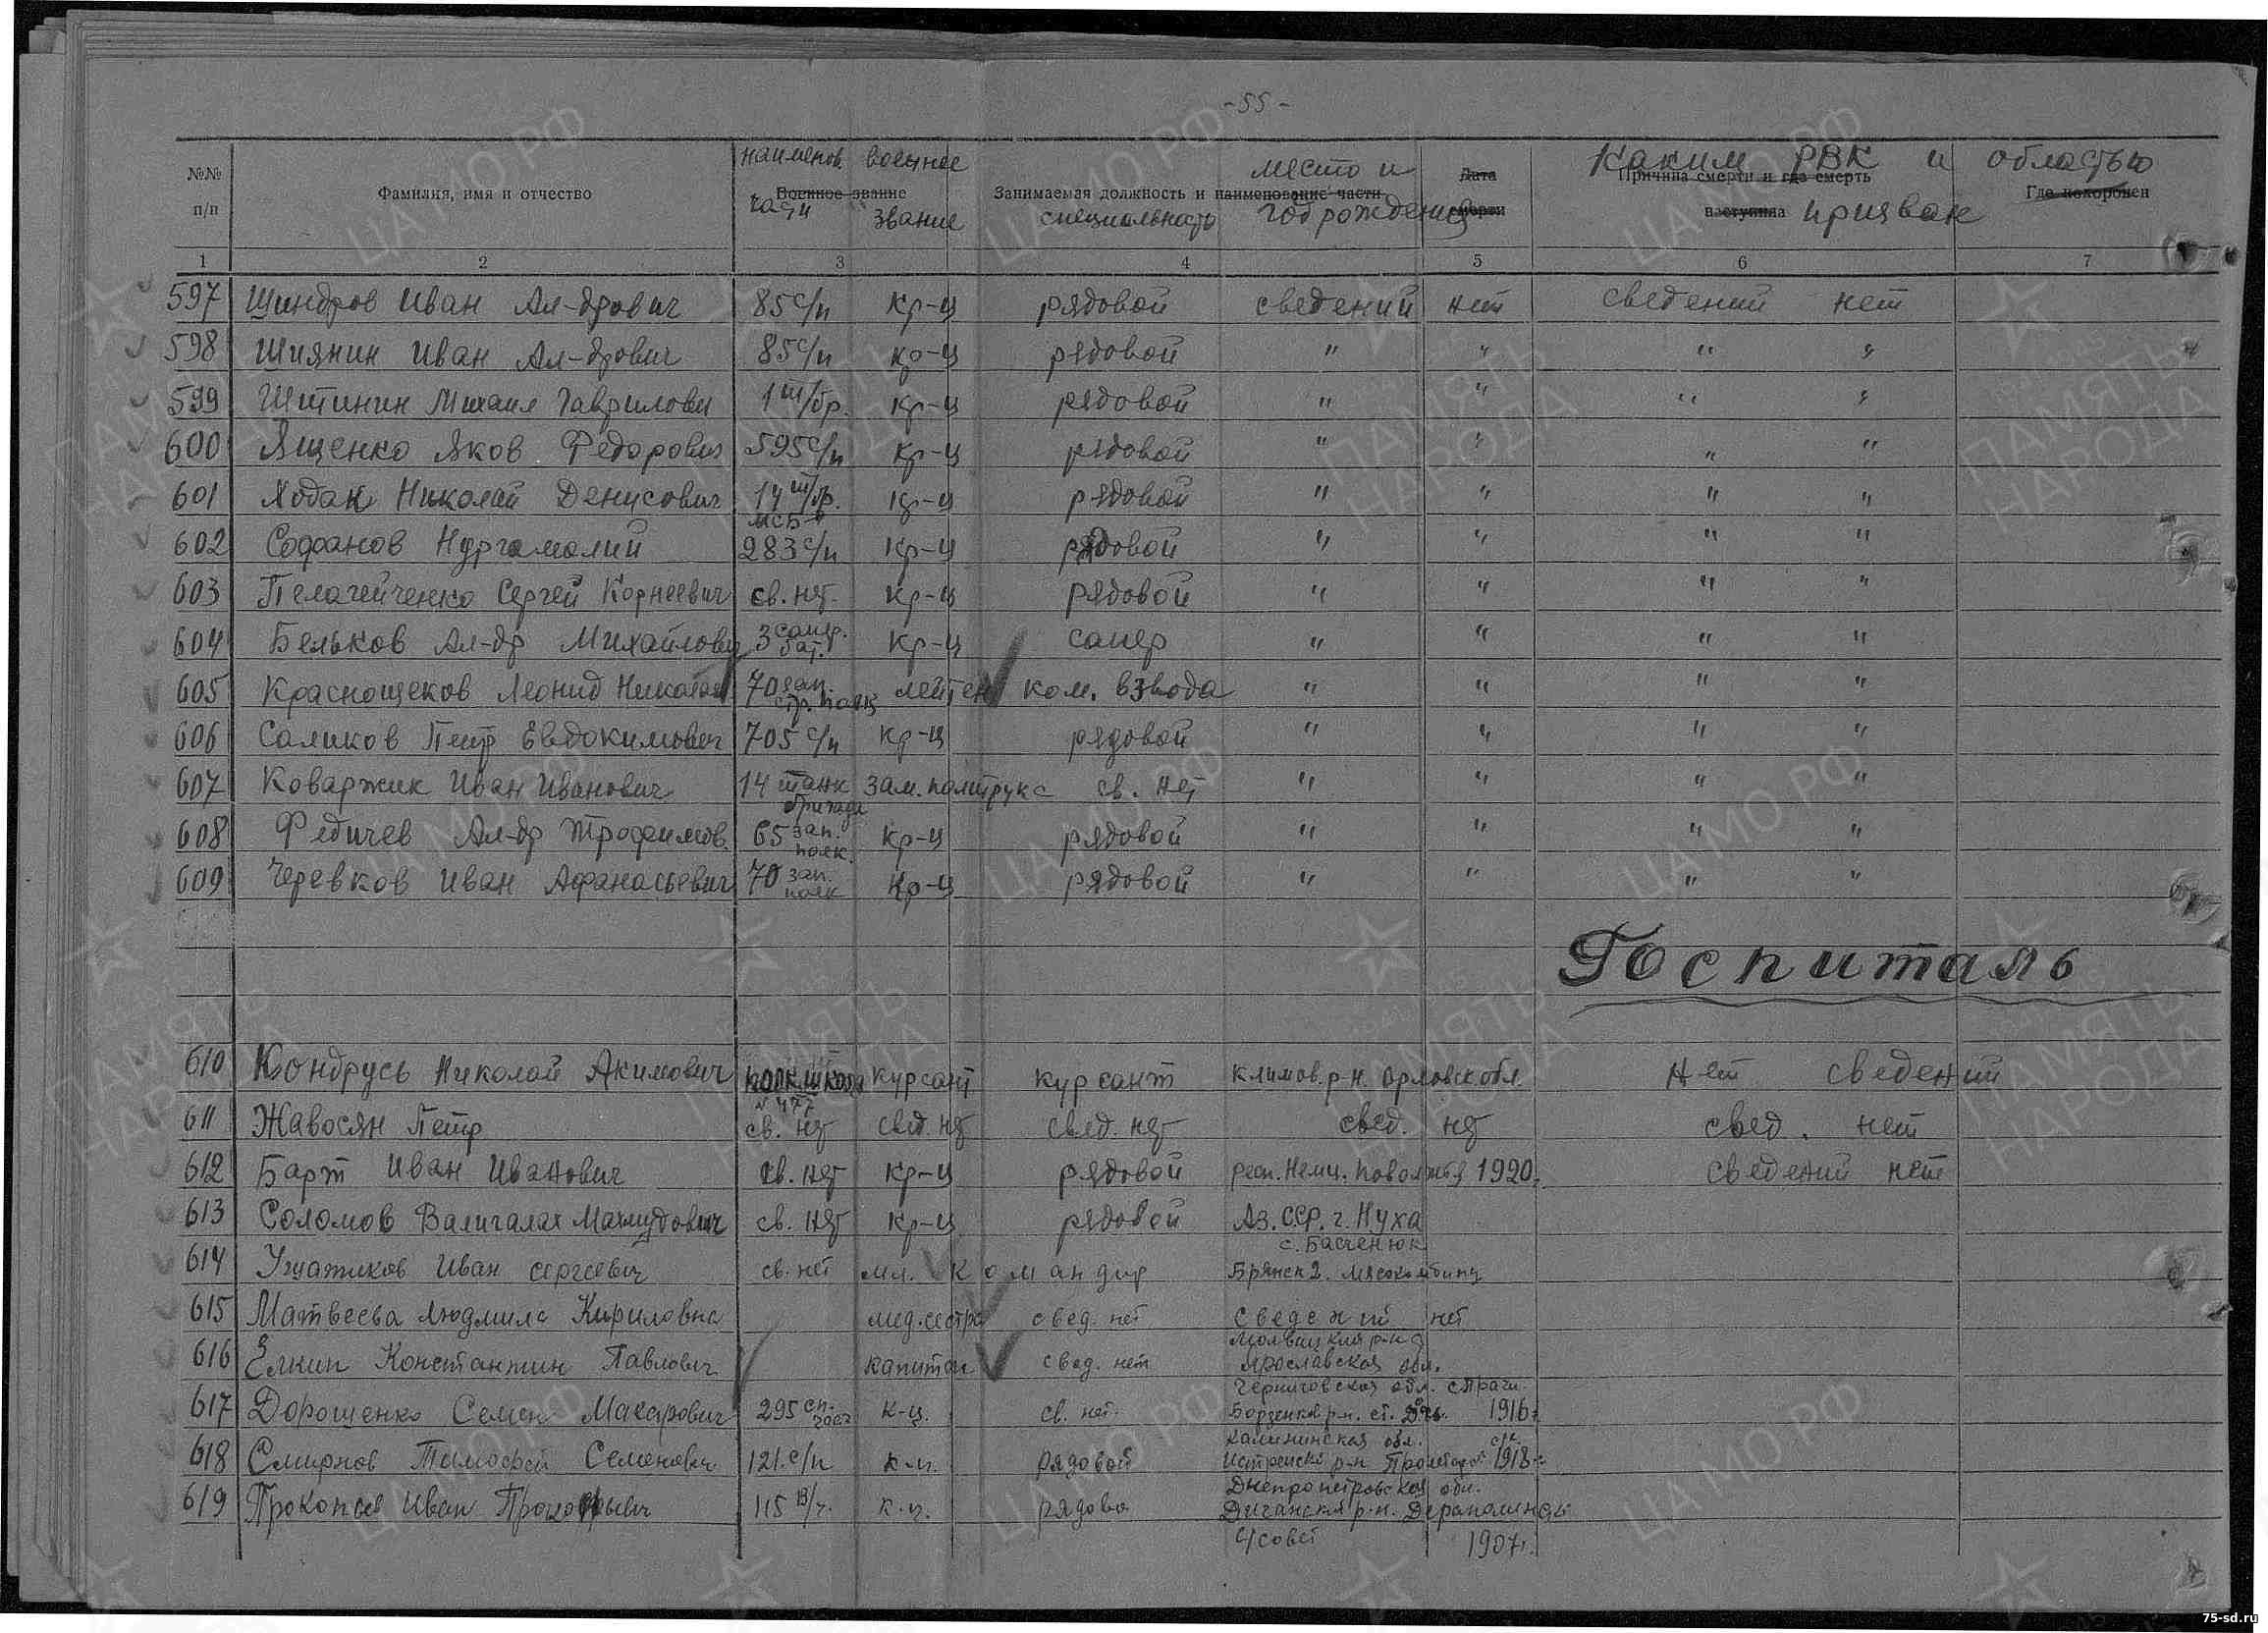 - 55 -
№№ п/п
Фамилия, имя и отчество
наименов. части
Военное звание
военное звание
Занимаемая должность и наименование части
специальность
место и год рождения
Дата смерти
Каким РВК и областью призван
Причина смерти и где смерть наступила
Где похоронен
1 2 3 4 5 6 7
597 Шиндров Иван Ал-дрович 85 с/п кр-ц рядовой сведений нет сведений нет
598 Шиянин Иван Ал-дрович 85 с/п кр-ц рядовой " " " "
599 Щетинин Михаил Гаврилович 1 ш/бр. кр-ц рядовой " " " "
600 Ященко Яков Федорович 595 с/п кр-ц рядовой " " " "
601 Ходак Николай Денисович 14 ш/бр. кр-ц рядовой " " " "
602 Софанов Нургамалий МСБ-н 283 с/п кр-ц рядовой " " " "
603 Пелагейченко Сергей Корнеевич св. нет. кр-ц рядовой " " " "
604 Бельков Ал-др Михайлович 3 сапер. бат. кр-ц сапер " " " "
605 Краснощеков Леонид 70 зап. стр. полк лейтен ком. взвода " " " "
606 Саликов Петр Евдокимович 705 с/п кр-ц рядовой " " " "
607 Коваржик Иван Иванович 14 танк бригада зам. политрука св. нет " " " "
608 Федичев Ал-др Трофимов. 65 зап. полк. кр-ц рядовой " " " "
609 Черевков Иван Афанасьевич 70 зап. полк кр-ц рядовой " " " "
Госпиталь
610 Кондрусь Николай Акимович полк. школа № 477 курсант курсант Климов. р-н. Орловск. обл. Нет сведений
611 Жавосян Петр св. нет свед. нет свед. нет свед. нет свед. нет
612 Барт Иван Иванович св. нет кр-ц рядовой респ. Немц. Поволжья 1920. сведений нет
613 Соломов Валигалах Махмудович св. нет кр-ц рядовой Аз. ССР. г. Нуха
с.
614 Иван Сергеевич св. нет мл. командир Брянск 2.
615 Матвеева Людмила Кириловна мед. сестра свед. нет Сведений нет
616 Елкин Константин Павлович капитан свед. нет Ярославская обл.
Черниговская обл.
617 Дорошенко Семен Макарович 295 сп. к-ц. св. нет. 1916 г
Калининская обл.
618 Смирнов Тимофей Семенович 121. с/п к-ц. рядовой р-н 1918 г.
Днепропетровская обл.
619 Прокопьев Иван 115 к-ц. рядово р-н.
с/совет 1907 г.
ПАМЯТЬ НАРОДА
ЦАМО РФ
75-sd.ru